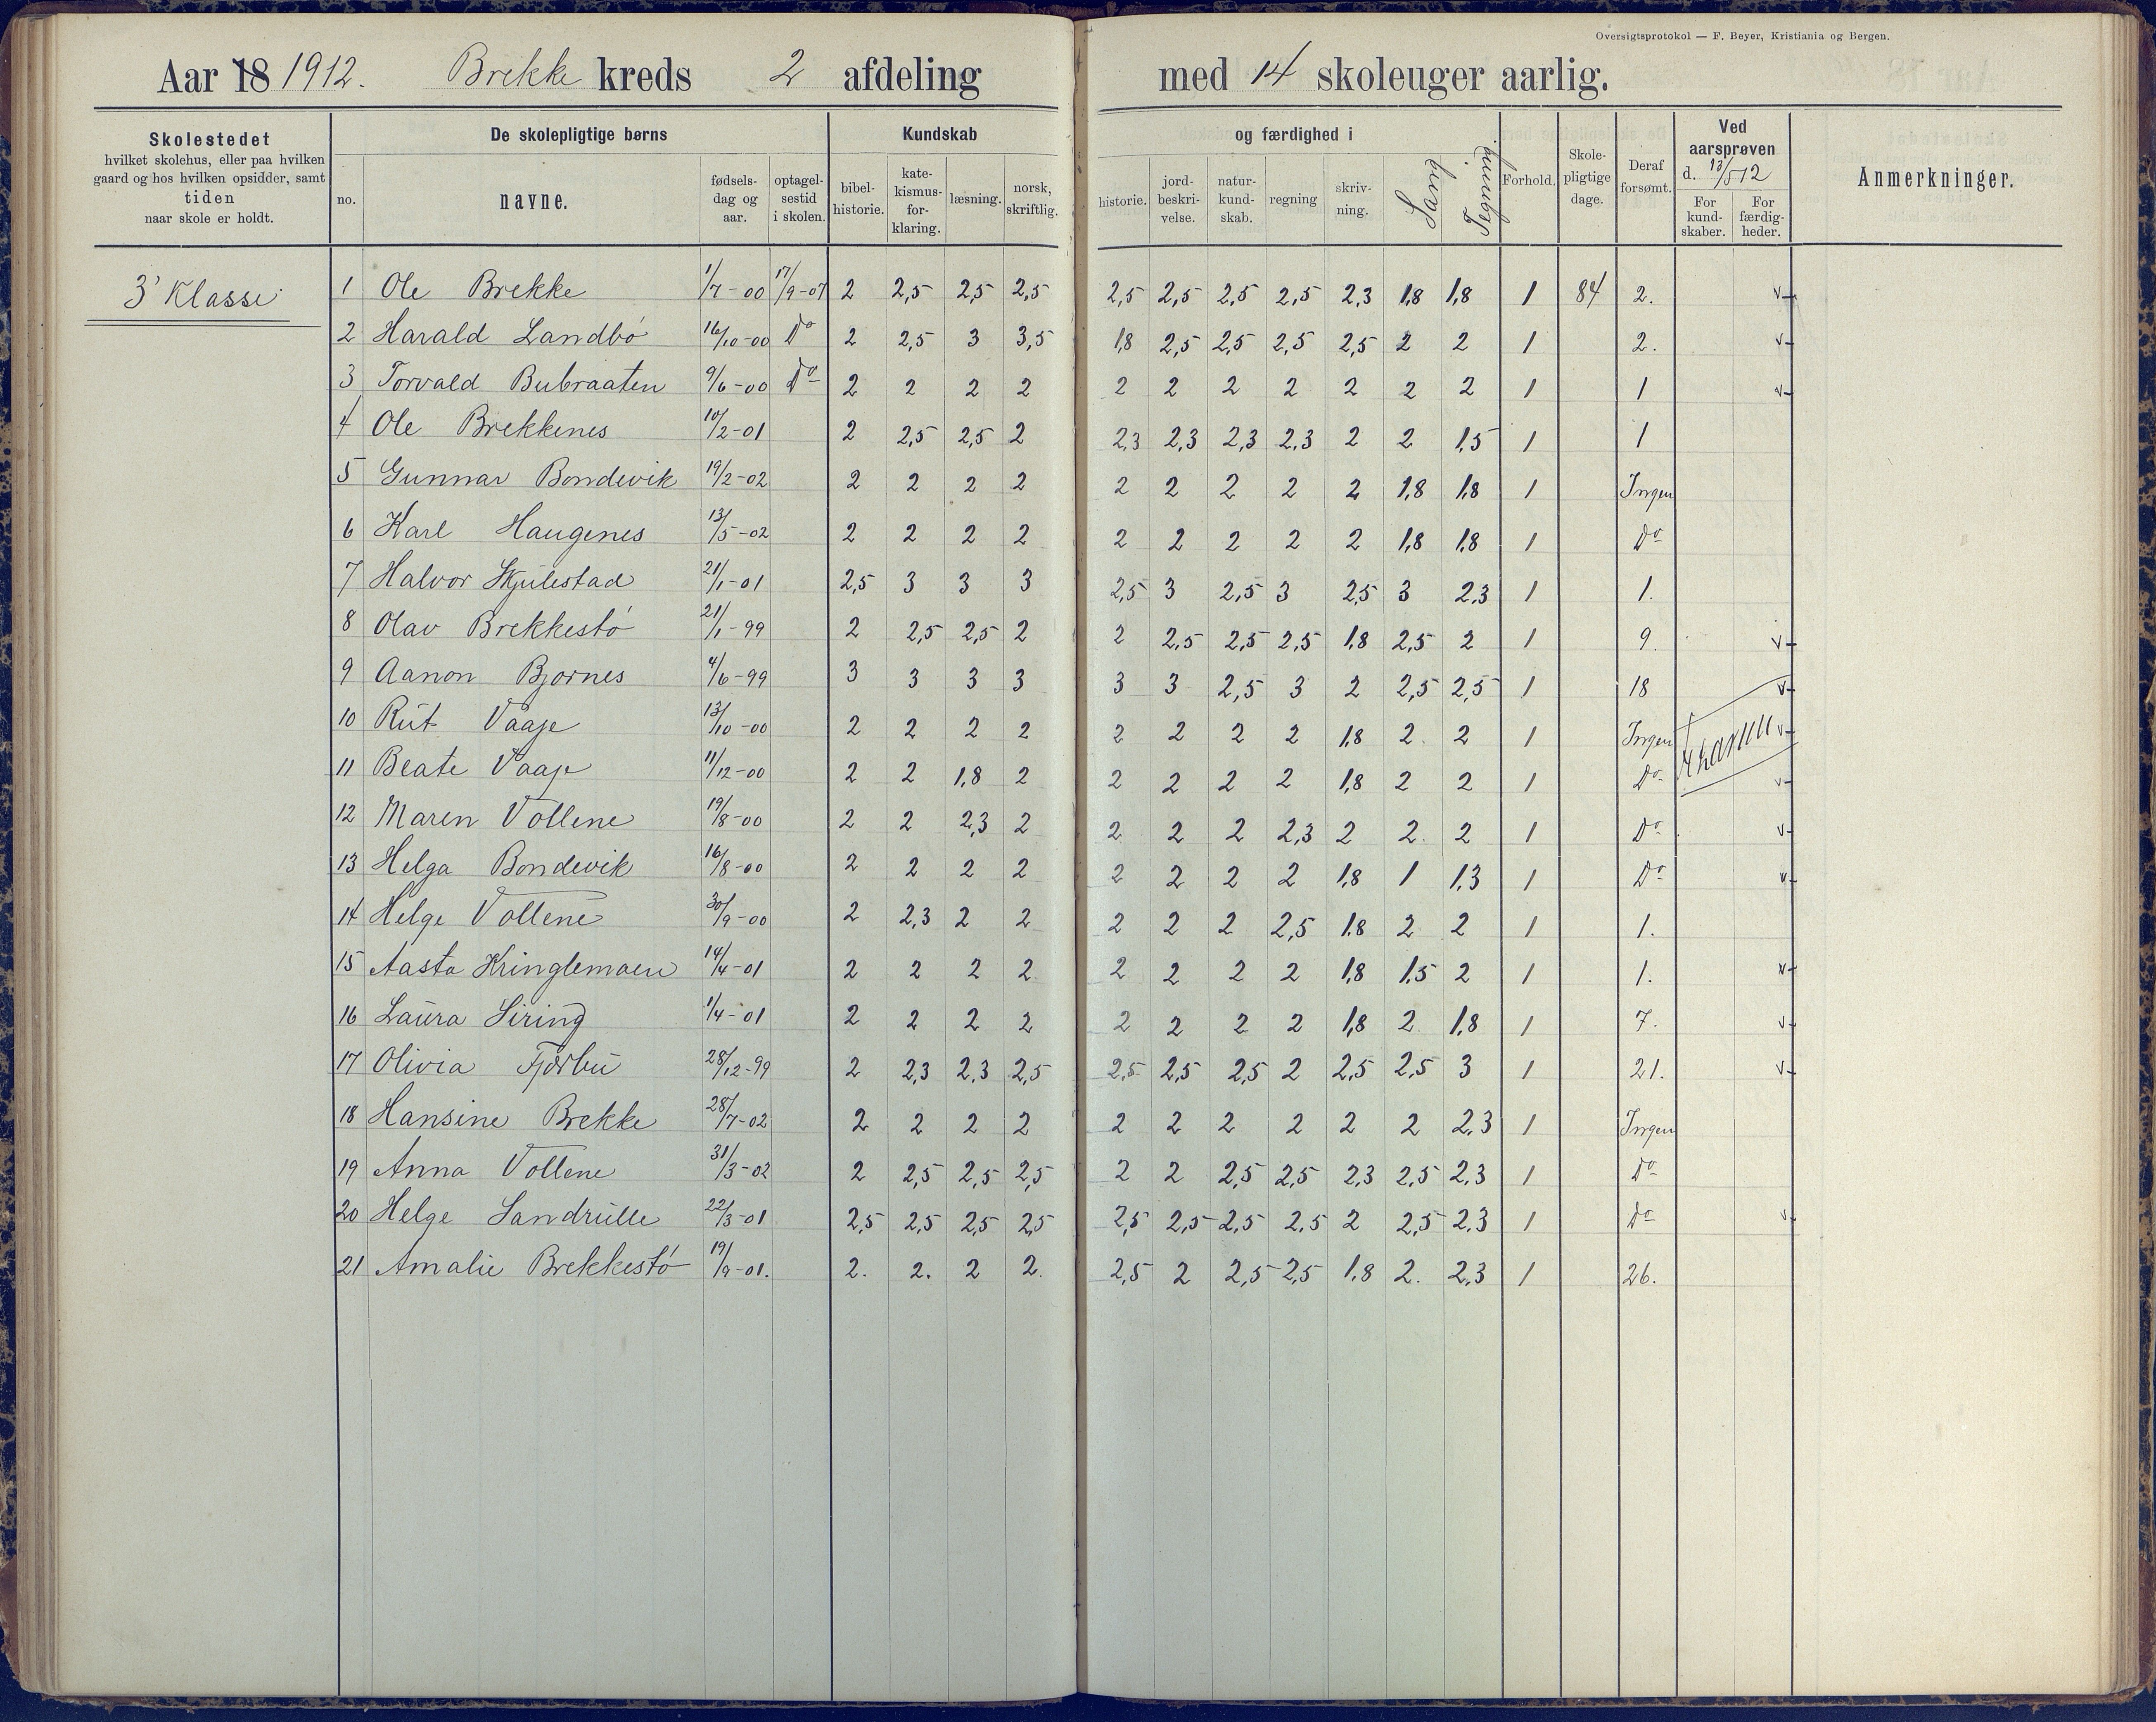 Oversigtsprotokol — F. Beyer, Kristiania og Bergen.
Aar 18 1912. Brekke kreds 2 afdeling med 14 skoleuger aarlig.
Skolestedet
hvilket skolehus, eller paa hvilken
gaard og hos hvilken opsidder, samt
tiden
naar skole er holdt.
De skolepligtige børns
no.
navne.
fødsels-
dag og
aar.
optagel-
sestid
i skolen.
Kundskab
bibel-
historie.
kate-
kismus-
for-
klaring.
læsning.
norsk,
skriftlig.
og færdighed i
historie.
jord-
beskri-
velse.
natur-
kund-
skab.
regning
skriv-
ning.
Sang
Tegning
Forhold.
Skole-
pligtige
dage.
Deraf
forsømt.
Ved
aarsprøven
d. 13/5 12
For
kund-
skaber.
For
færdig-
heder.
Anmerkninger.
3' Klasse
1 Ole Brekke 1/7-00 17/9-07 2 2,5 2,5 2,5 2,5 2,5 2,5 2,5 2,3 1,8 1,8 1 84 2. v
2 Harald Landbö 16/10-00 Do 2 2,5 3 3,5 1,8 2,5 2,5 2,5 2,5 2 2 1 2. v
3 Torvald Bubraaten 9/6-00 Do 2 2 2 2 2 2 2 2 2 2 2 1 1 v
4 Ole Brekkenes 10/2-01 2 2,5 2,5 2 2,3 2,3 2,3 2,3 2 2 1,5 1 1
5 Gunnar Bondevik 19/2-02 2 2 2 2 2 2 2 2 2 1,8 1,8 1 Ingen
6 Karl Haugenes 13/5-02 2 2 2 2 2 2 2 2 2 1,8 1,8 1 Do
7 Halvor Skjulestad 21/1-01 2,5 3 3 3 2,5 3 2,5 3 2,5 3 2,3 1 1.
8 Olav Brekkestö 21/1-99 2 2,5 2,5 2 2 2,5 2,5 2,5 1,8 2,5 2 1 9. v
9 Aanon Bjornes 4/6-99 3 3 3 3 3 3 2,5 3 2 2,5 2,5 1 18 v
10 Rut Vaaje 13/10-00 2 2 2 2 2 2 2 2 1,8 2. 2 1 Ingen v
11 Beate Vaaje 11/12-00 2 2 1,8 2 2 2 2 2 1,8 2 2 1 Do v
12 Maren Vollene 19/8-00 2 2 2,3 2 2 2 2 2,3 2 2. 2 1 Do v
13 Helga Bondevik 16/8-00 2 2 2 2 2 2 2 2 1,8 1 1,3 1 Do v
14 Helge Vollene 30/9-00 2 2,3 2 2 2 2 2 2,5 1,8 2 2 1 1. v
15 Aasta Kringlemoen 14/4-01 2 2 2 2 2 2 2 2 1,8 1,5 2 1 1. v
16 Laura Siring 1/4-01 2 2 2 2 2 2 2 2 1,8 2 1,8 1 7. v
17 Olivia Fjærbu 28/12-99 2 2,3 2,3 2,5 2,5 2,5 2,5 2 2,5 2,5 3 1 21. v
18 Hansine Brekke 28/7-02 2 2 2 2 2 2 2 2 2 2 2,3 1 Ingen
19 Anna Vollene 31/3-02 2 2,5 2,5 2,5 2 2 2,5 2,5 2,3 2,5 2,3 1 Do
20 Helge Sandrulle 22/3-01 2,5 2,5 2,5 2,5 2,5 2,5 2,5 2,5 2 2,5 2,3 1 Do v
21 Amalie Brekkestö 19/9-01. 2. 2. 2 2. 2,5 2 2,5 2,5 1,8 2. 2,3 1 26.